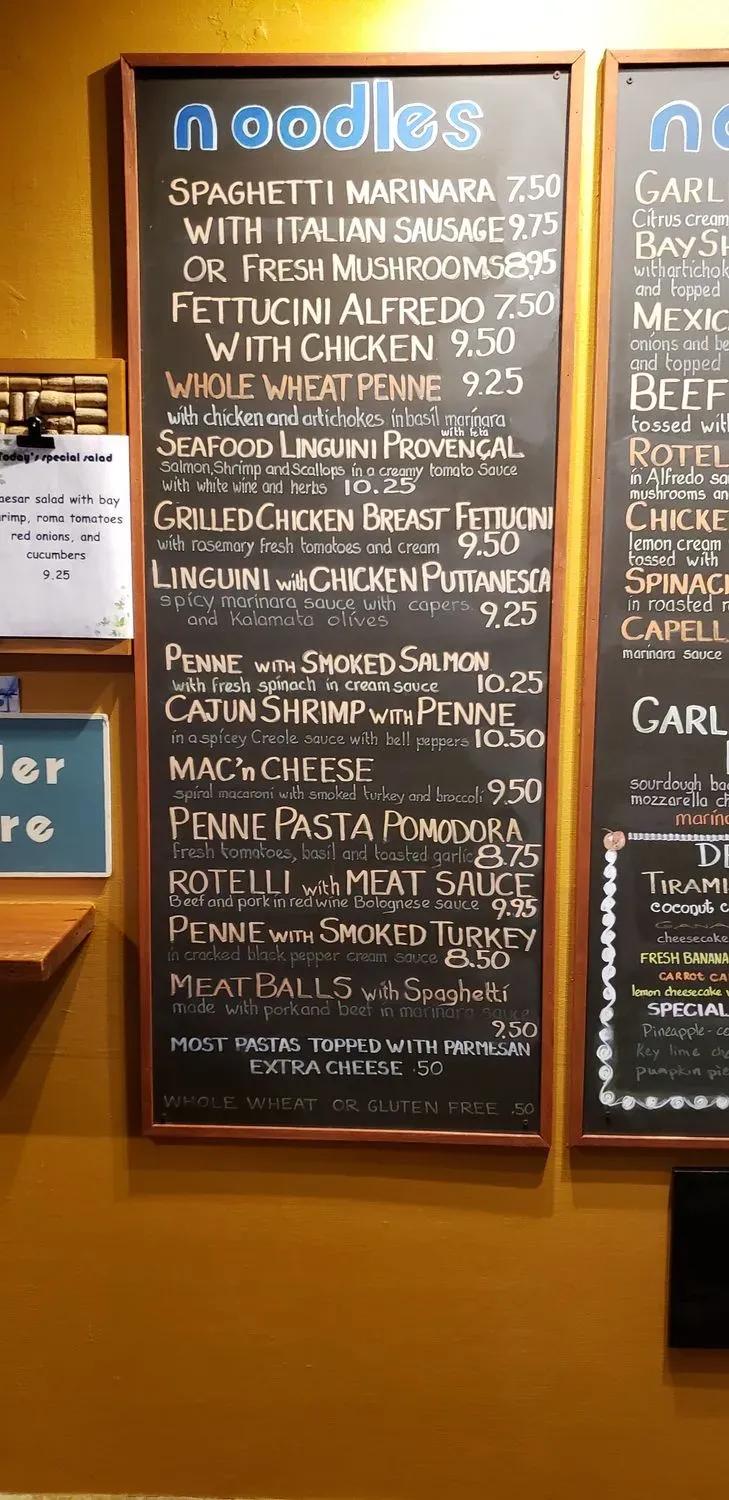 noodles
SPAGHETTI MARINARA 7.50
WITH ITALIAN SAUSAGE 9.75
OR FRESH MUSHROOMS 8.95
FETTUCINI ALFREDO 7.50
WITH CHICKEN 9.50
WHOLE WHEAT PENNE 9.25
with chicken and artichokes in basil marinara
with feta
SEAFOOD LINGUINI PROVENÇAL
Salmon, Shrimp and Scallops in a creamy tomato Sauce
with white wine and herbs 10.25
GRILLED CHICKEN BREAST FETTUCINI
with rosemary fresh tomatoes and cream 9.50
LINGUINI with CHICKEN PUTTANESCA
spicy marinara sauce with capers
and Kalamata olives 9.25
PENNE WITH SMOKED SALMON
with fresh spinach in cream sauce 10.25
CAJUN SHRIMP WITH PENNE
in a spicey Creole sauce with bell peppers 10.50
MAC'n CHEESE
spiral macaroni with smoked turkey and broccoli 9.50
PENNE PASTA POMODORA
fresh tomatoes, basil and toasted garlic 8.75
ROTELLI with MEAT SAUCE
Beef and pork in red wine Bolognese sauce 9.95
PENNE WITH SMOKED TURKEY
in cracked black pepper cream sauce 8.50
MEAT BALLS with Spaghetti
made with pork and beef in marinara sauce
9.50
MOST PASTAS TOPPED WITH PARMESAN
EXTRA CHEESE .50
WHOLE WHEAT OR GLUTEN FREE .50
Today's special salad
aesar salad with bay
rimp, roma tomatoes
red onions, and
cucumbers
9.25
der
re
no
GARL
Citrus cream
BAY SH
with artichok
and topped
MEXIC
onions and be
and topped
BEEF
tossed with
ROTEL
in Alfredo sa
mushrooms an
CHICKE
lemon cream
tossed with
SPINAC
in roasted r
CAPELL
marinara sauce
GARL
sourdough ba
mozzarella ch
marina
DE
TIRAMI
coconut c
cheesecake
FRESH BANANA
CARROT CA
lemon cheesecake
SPECIAL
Pineapple-co
Key lime che
pumpkin pie